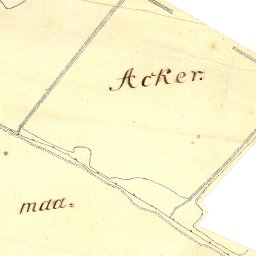 Acker.
maa=